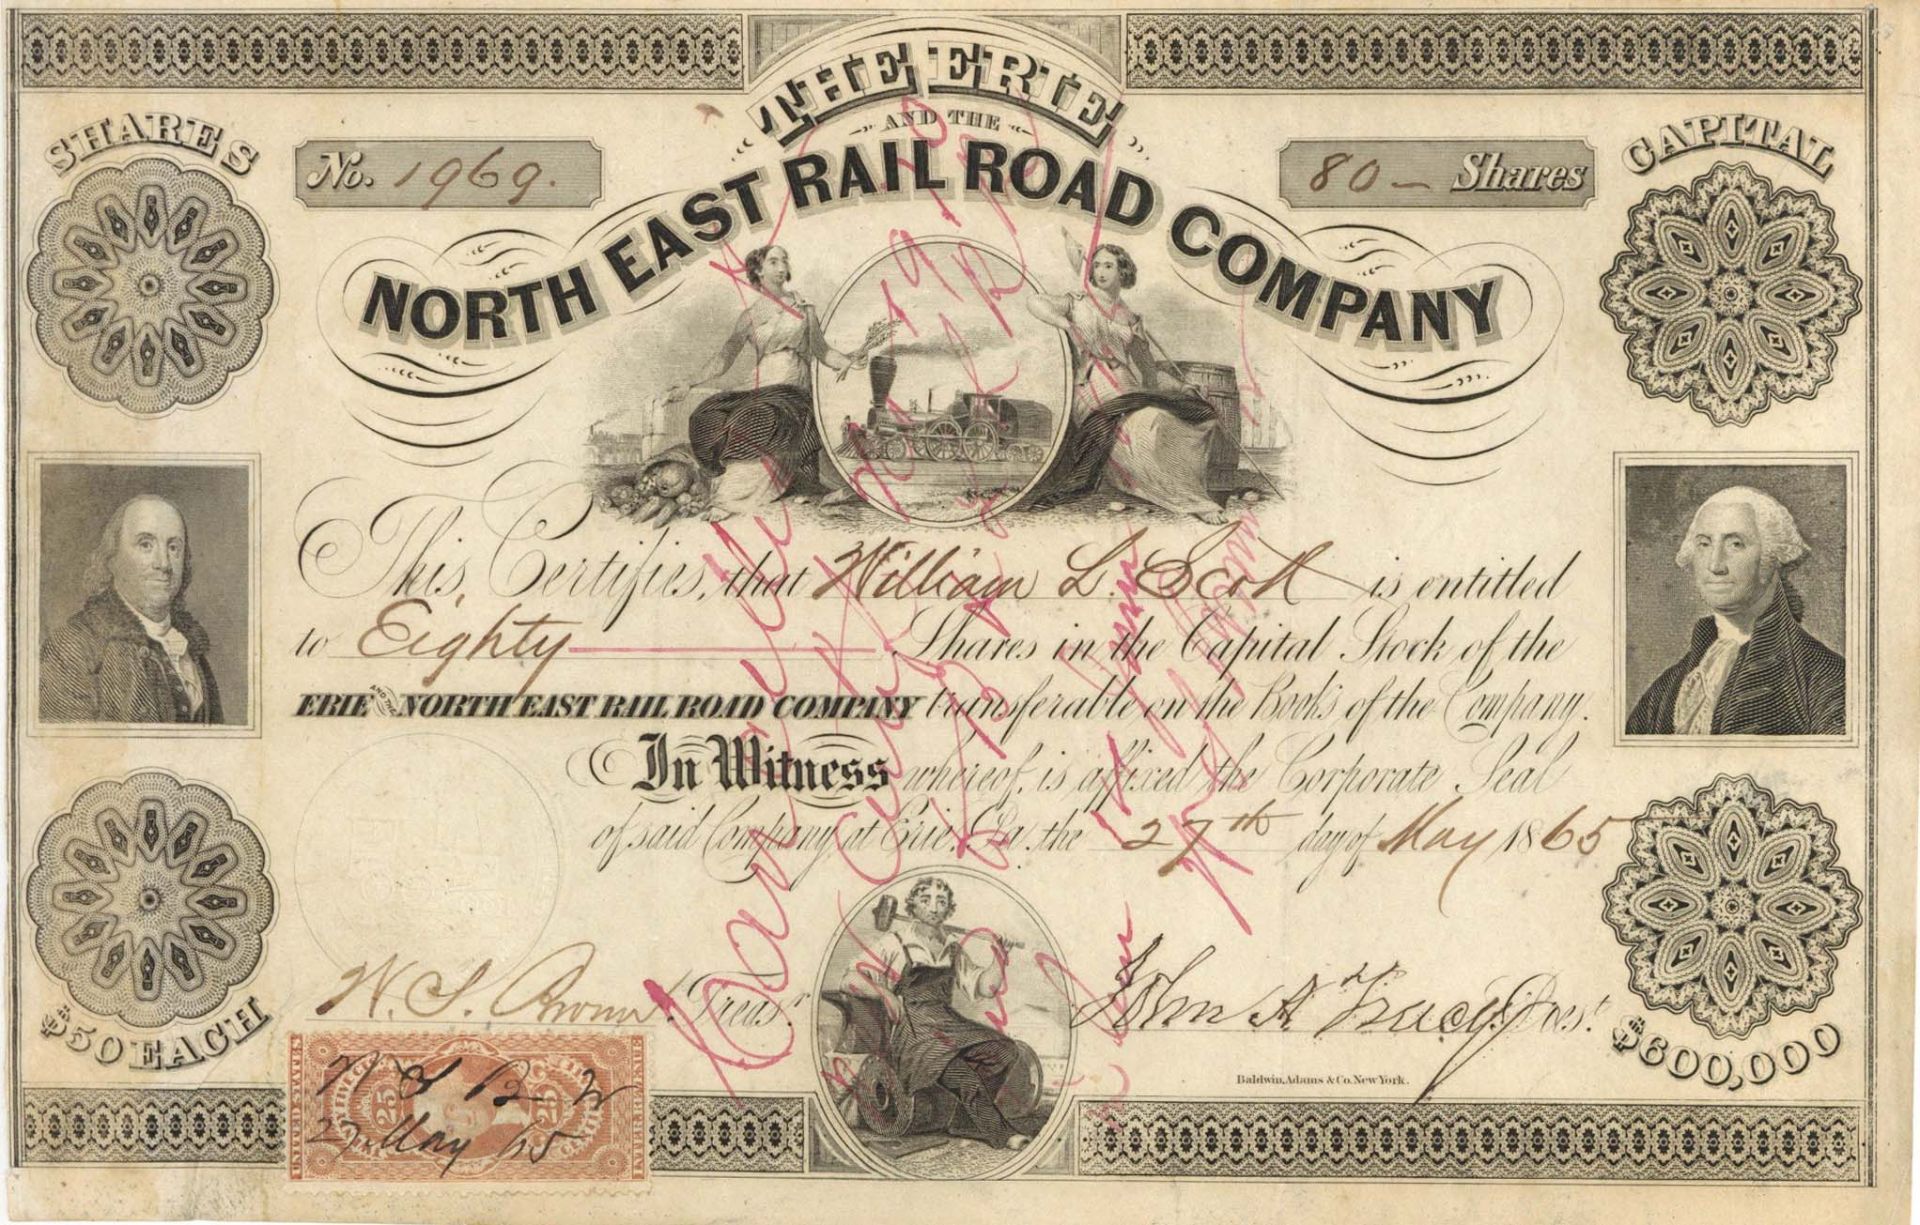 THE ERIE
AND THE
NORTH EAST RAIL ROAD COMPANY
SHARES
No. 1969.
80 - Shares
CAPITAL
This Certifies, that William L. Scott is entitled
to Eighty Shares in the Capital Stock of the
ERIE AND THE NORTH EAST RAIL ROAD COMPANY transferable on the Books of the Company.
In Witness whereof, is affixed the Corporate Seal
of said Company, at Erie, Pa. the 27th day of May 1865
W. S. Brown Treasr.
John A. Tracy Prest.
$50 EACH
$600,000
Baldwin, Adams & Co. New York.
UNITED STATES
25
25
INTER. REVENUE
W S B
27 May 65